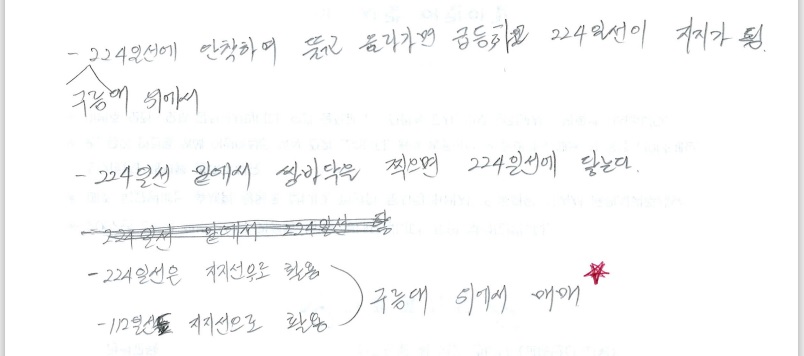 - 224일선에 안착하며 뚫고 올라가면 급등하고 224일선이 지지가 됨.
구름대 위에서
- 224일선 밑에서 쌍바닥을 찍으면 224일선에 닿는다.
- 224일선 밑에서 224일선
- 224일선은 지지선으로 활용
- 112일선 지지선으로 활용
구름대 위에서 매매